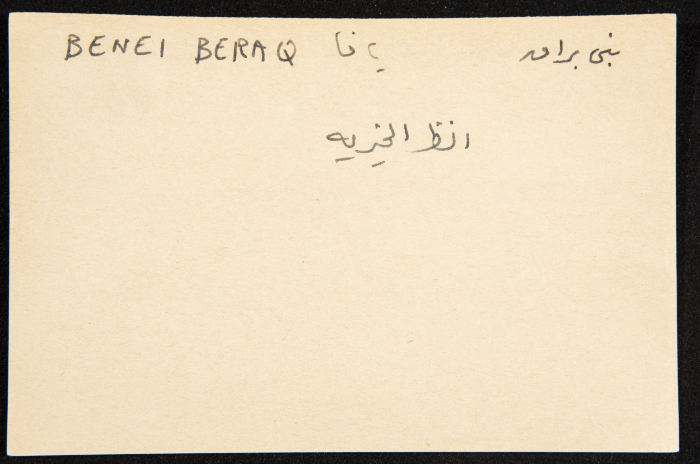 BENEI BERAQ يافا بني براق
انظر الخيريه